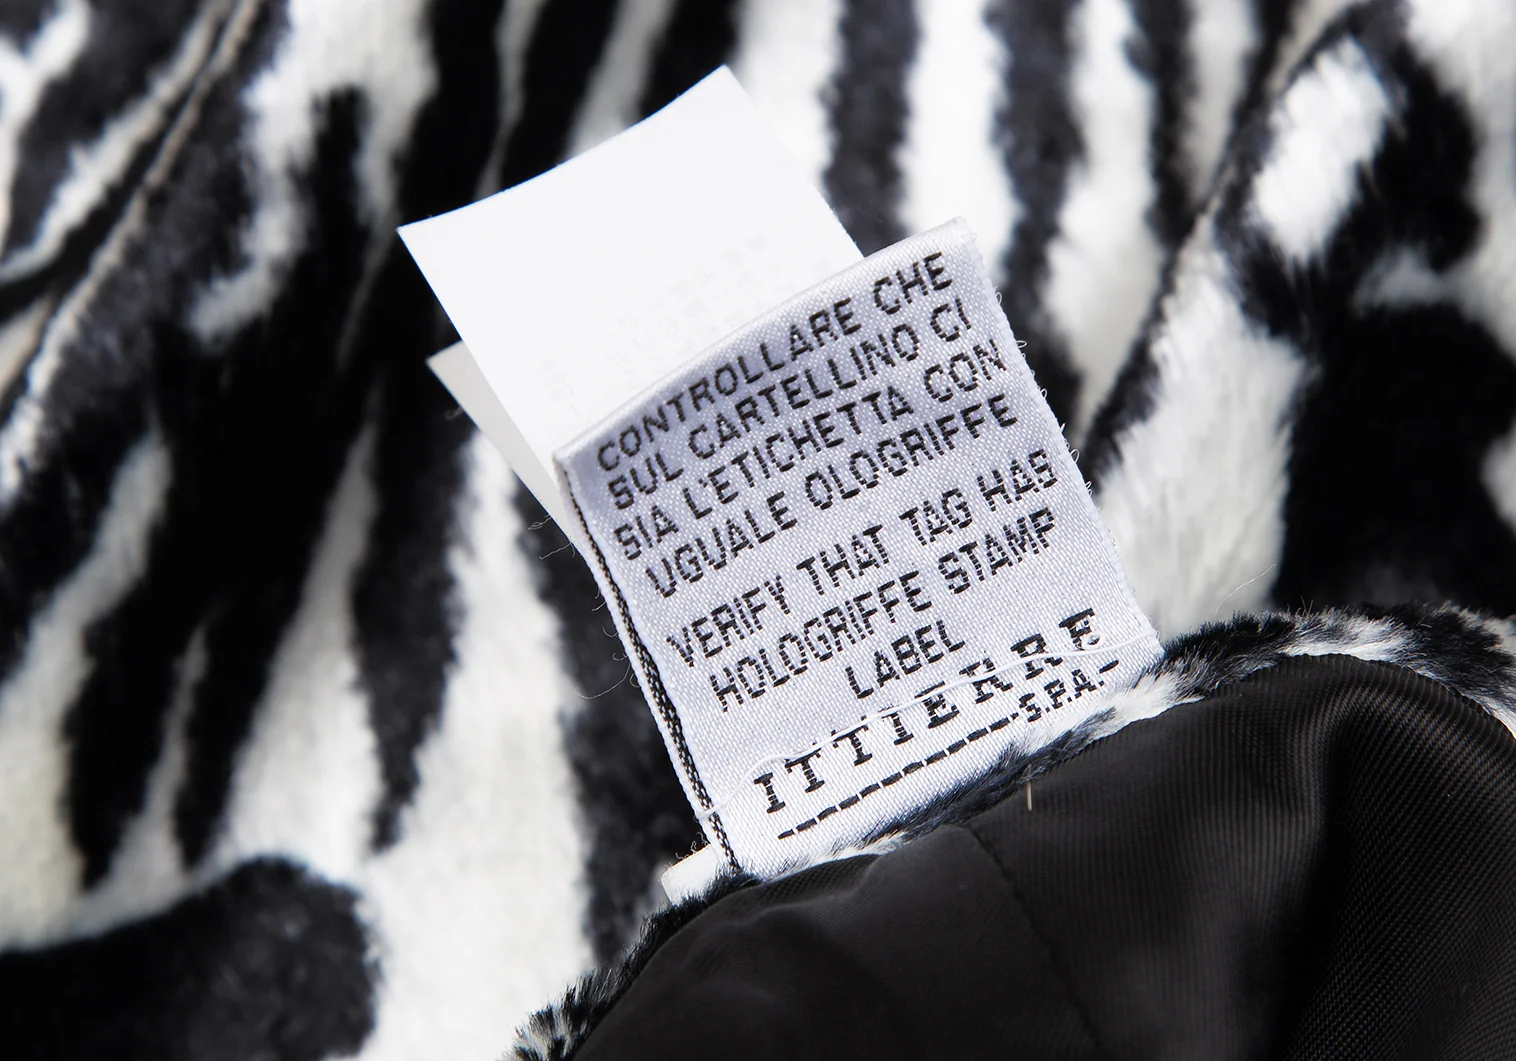 CONTROLLARE CHE
SUL CARTELLINO CI
SIA L'ETICHETTA CON
UGUALE OLOGRIFFE
VERIFY THAT TAG HAS
HOLOGRIFFE STAMP
LABEL
ITTIERRE
S.P.A.